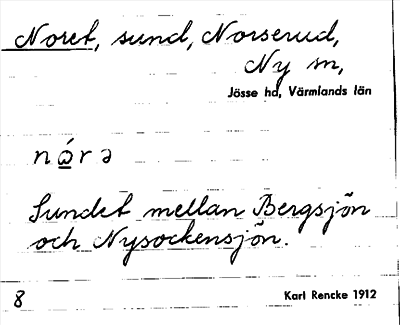 Noret, sund, Norserud,
Ny sn,
Jösse hd, Värmlands län
nǻrə
Sundet mellan Bergsjön
och Nysockensjön.
8
Karl Rencke 1912